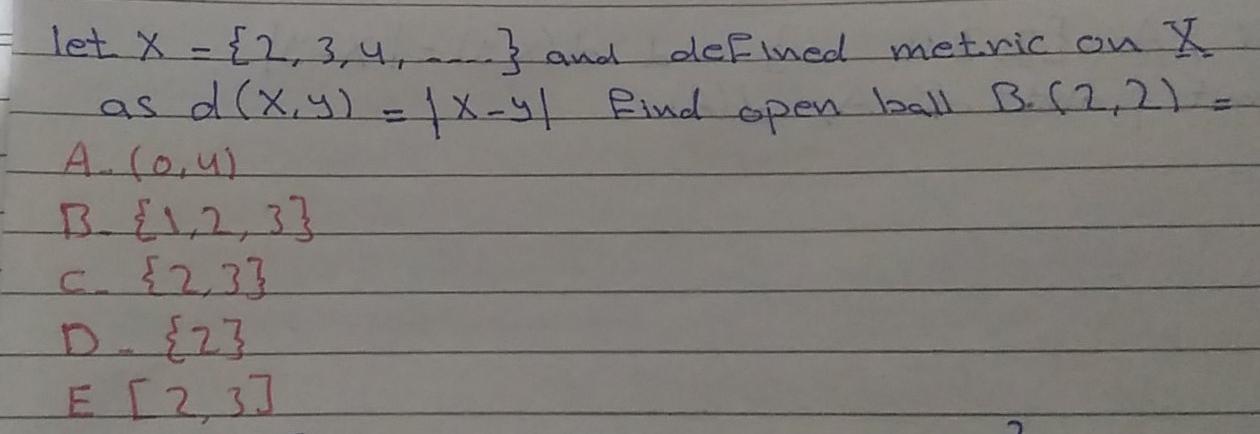 let X = {2, 3, 4, .....} and defined metric on X
as d(x,y) = |x-y| find open ball B(2,2) =
A. (0,4)
B. {1,2,3}
C. {2,3}
D. {2}
E [2,3]